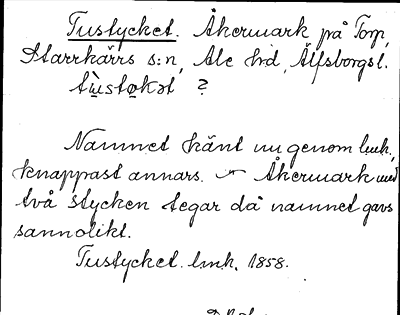 Tustycket. Åkermark på Torp,
Starrkärrs s:n, Ale hd, Älfsborgs l.
?
Namnet känt nu genom lmk,
knappast annars. — Åkermark med
två stycken tegar då namnet gavs
sannolikt.
Tustycket. lmk. 1858.